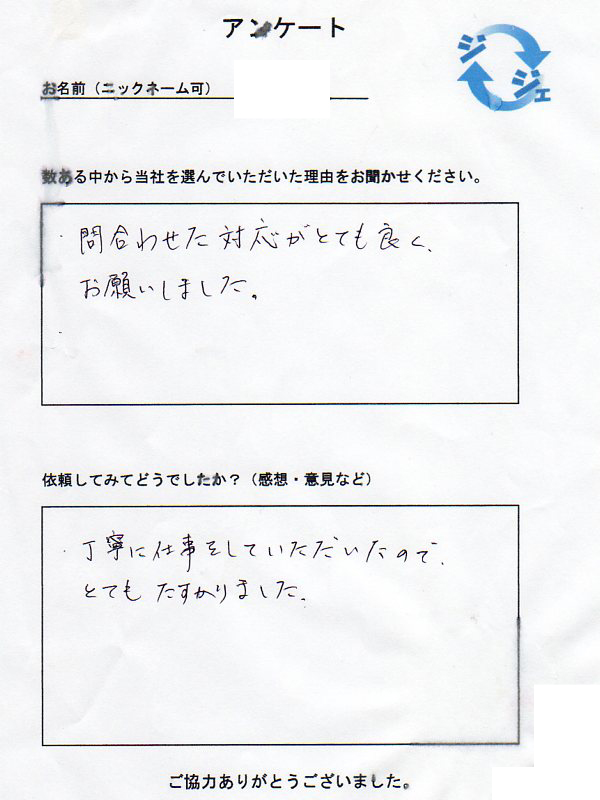 アンケート
ジ
ジェ
お名前（ニックネーム可）
数ある中から当社を選んでいただいた理由をお聞かせください。
・問合わせた対応がとても良く、
お願いしました。
依頼してみてどうでしたか？（感想・意見など）
・丁寧に仕事をしていただいたので、
とても たすかりました。
ご協力ありがとうございました。